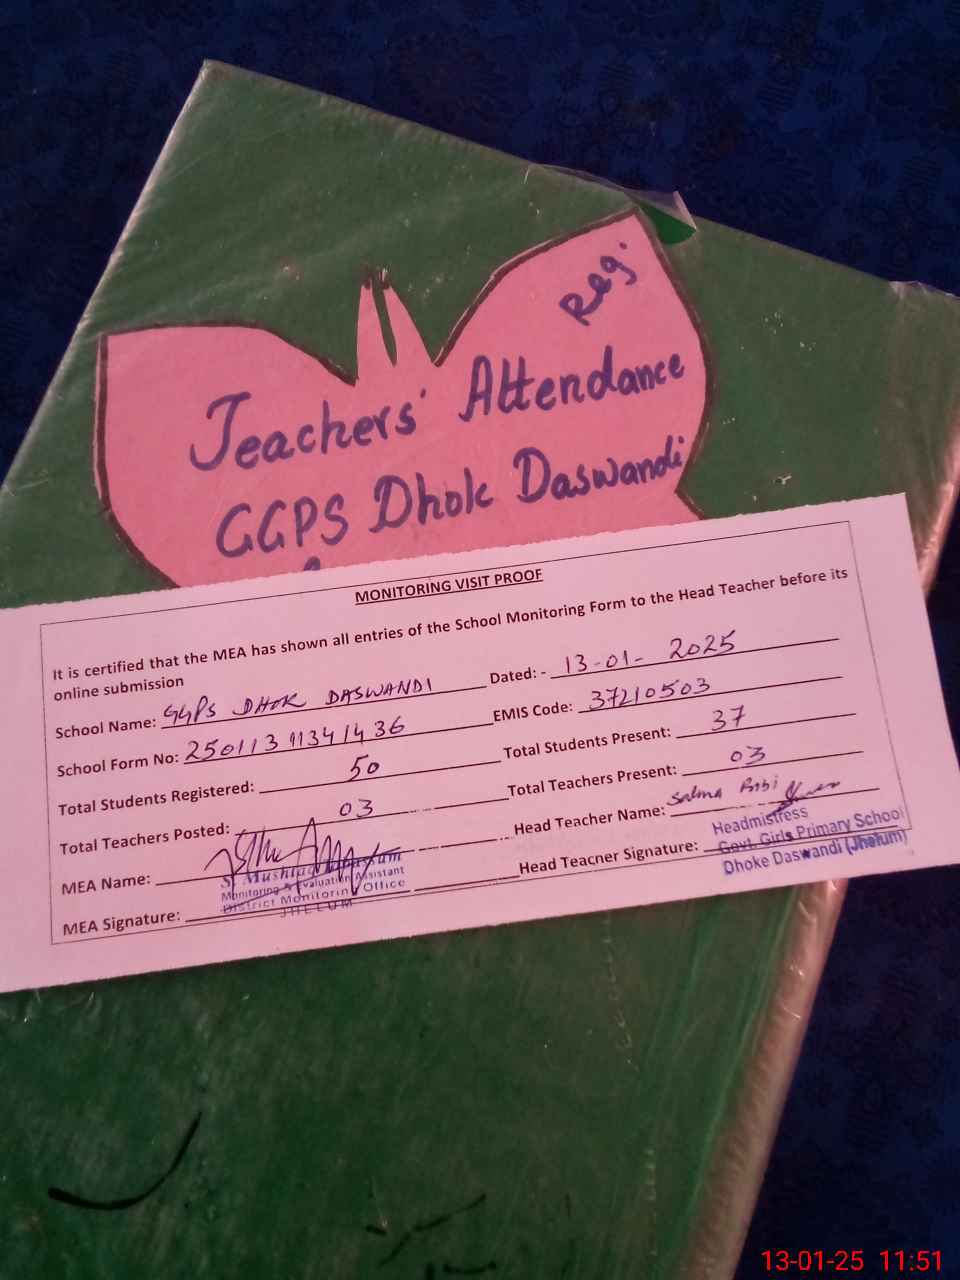 Reg.
Teachers' Attendance
GGPS Dhok Daswandi
MONITORING VISIT PROOF
It is certified that the MEA has shown all entries of the School Monitoring Form to the Head Teacher before its
online submission
School Name: GGPS DHOK DASWANDI Dated: - 13-01-2025
School Form No: 25011311341436 EMIS Code: 37210503
Total Students Registered: 50 Total Students Present: 37
Total Teachers Posted: 03 Total Teachers Present: 03
MEA Name: Head Teacher Name: Salma Bibi
MEA Signature: Head Teacher Signature:
Monitoring & Evaluation Assistant
District Monitoring Office
JHELUM
Headmistress
Govt. Girls Primary School
Dhoke Daswandi (Jhelum)
13-01-25 11:51